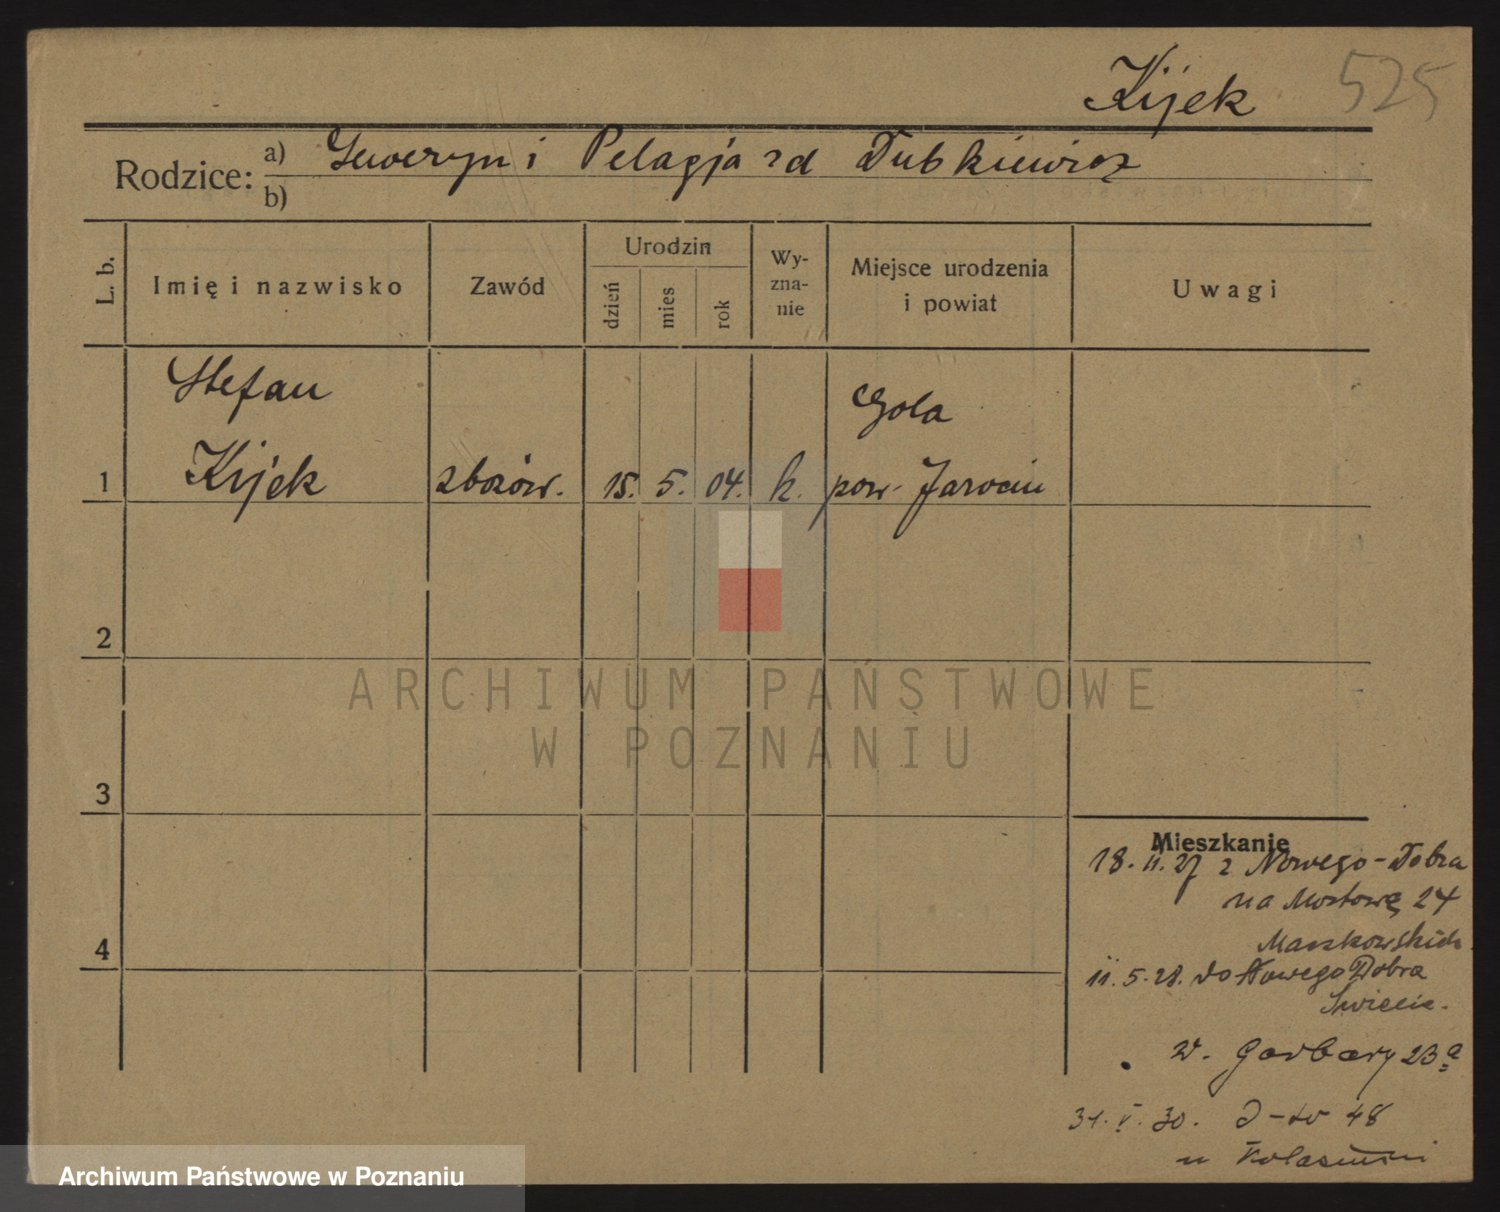 Kijek 525
Rodzice: a) Seweryn i Pelagja zd Dubkiewicz
b)
L. b. Imię i nazwisko Zawód Urodzin dzień mies rok Wy-zna-nie Miejsce urodzenia i powiat Uwagi
Stefan Gola
1 Kijek zbożow. 15. 5. 04. k. pow. Jarocin
2
ARCHIWUM PAŃSTWOWE
W POZNANIU
3
Mieszkanie
18. 11. 27 z Nowego-Dobra
na Mostowę 24
Maczkowskich
4
11. 5. 28. do Nowego Dobra
Świecie.
W. Garbary 23a
31. V. 30. D-to 48
u
Archiwum Państwowe w Poznaniu